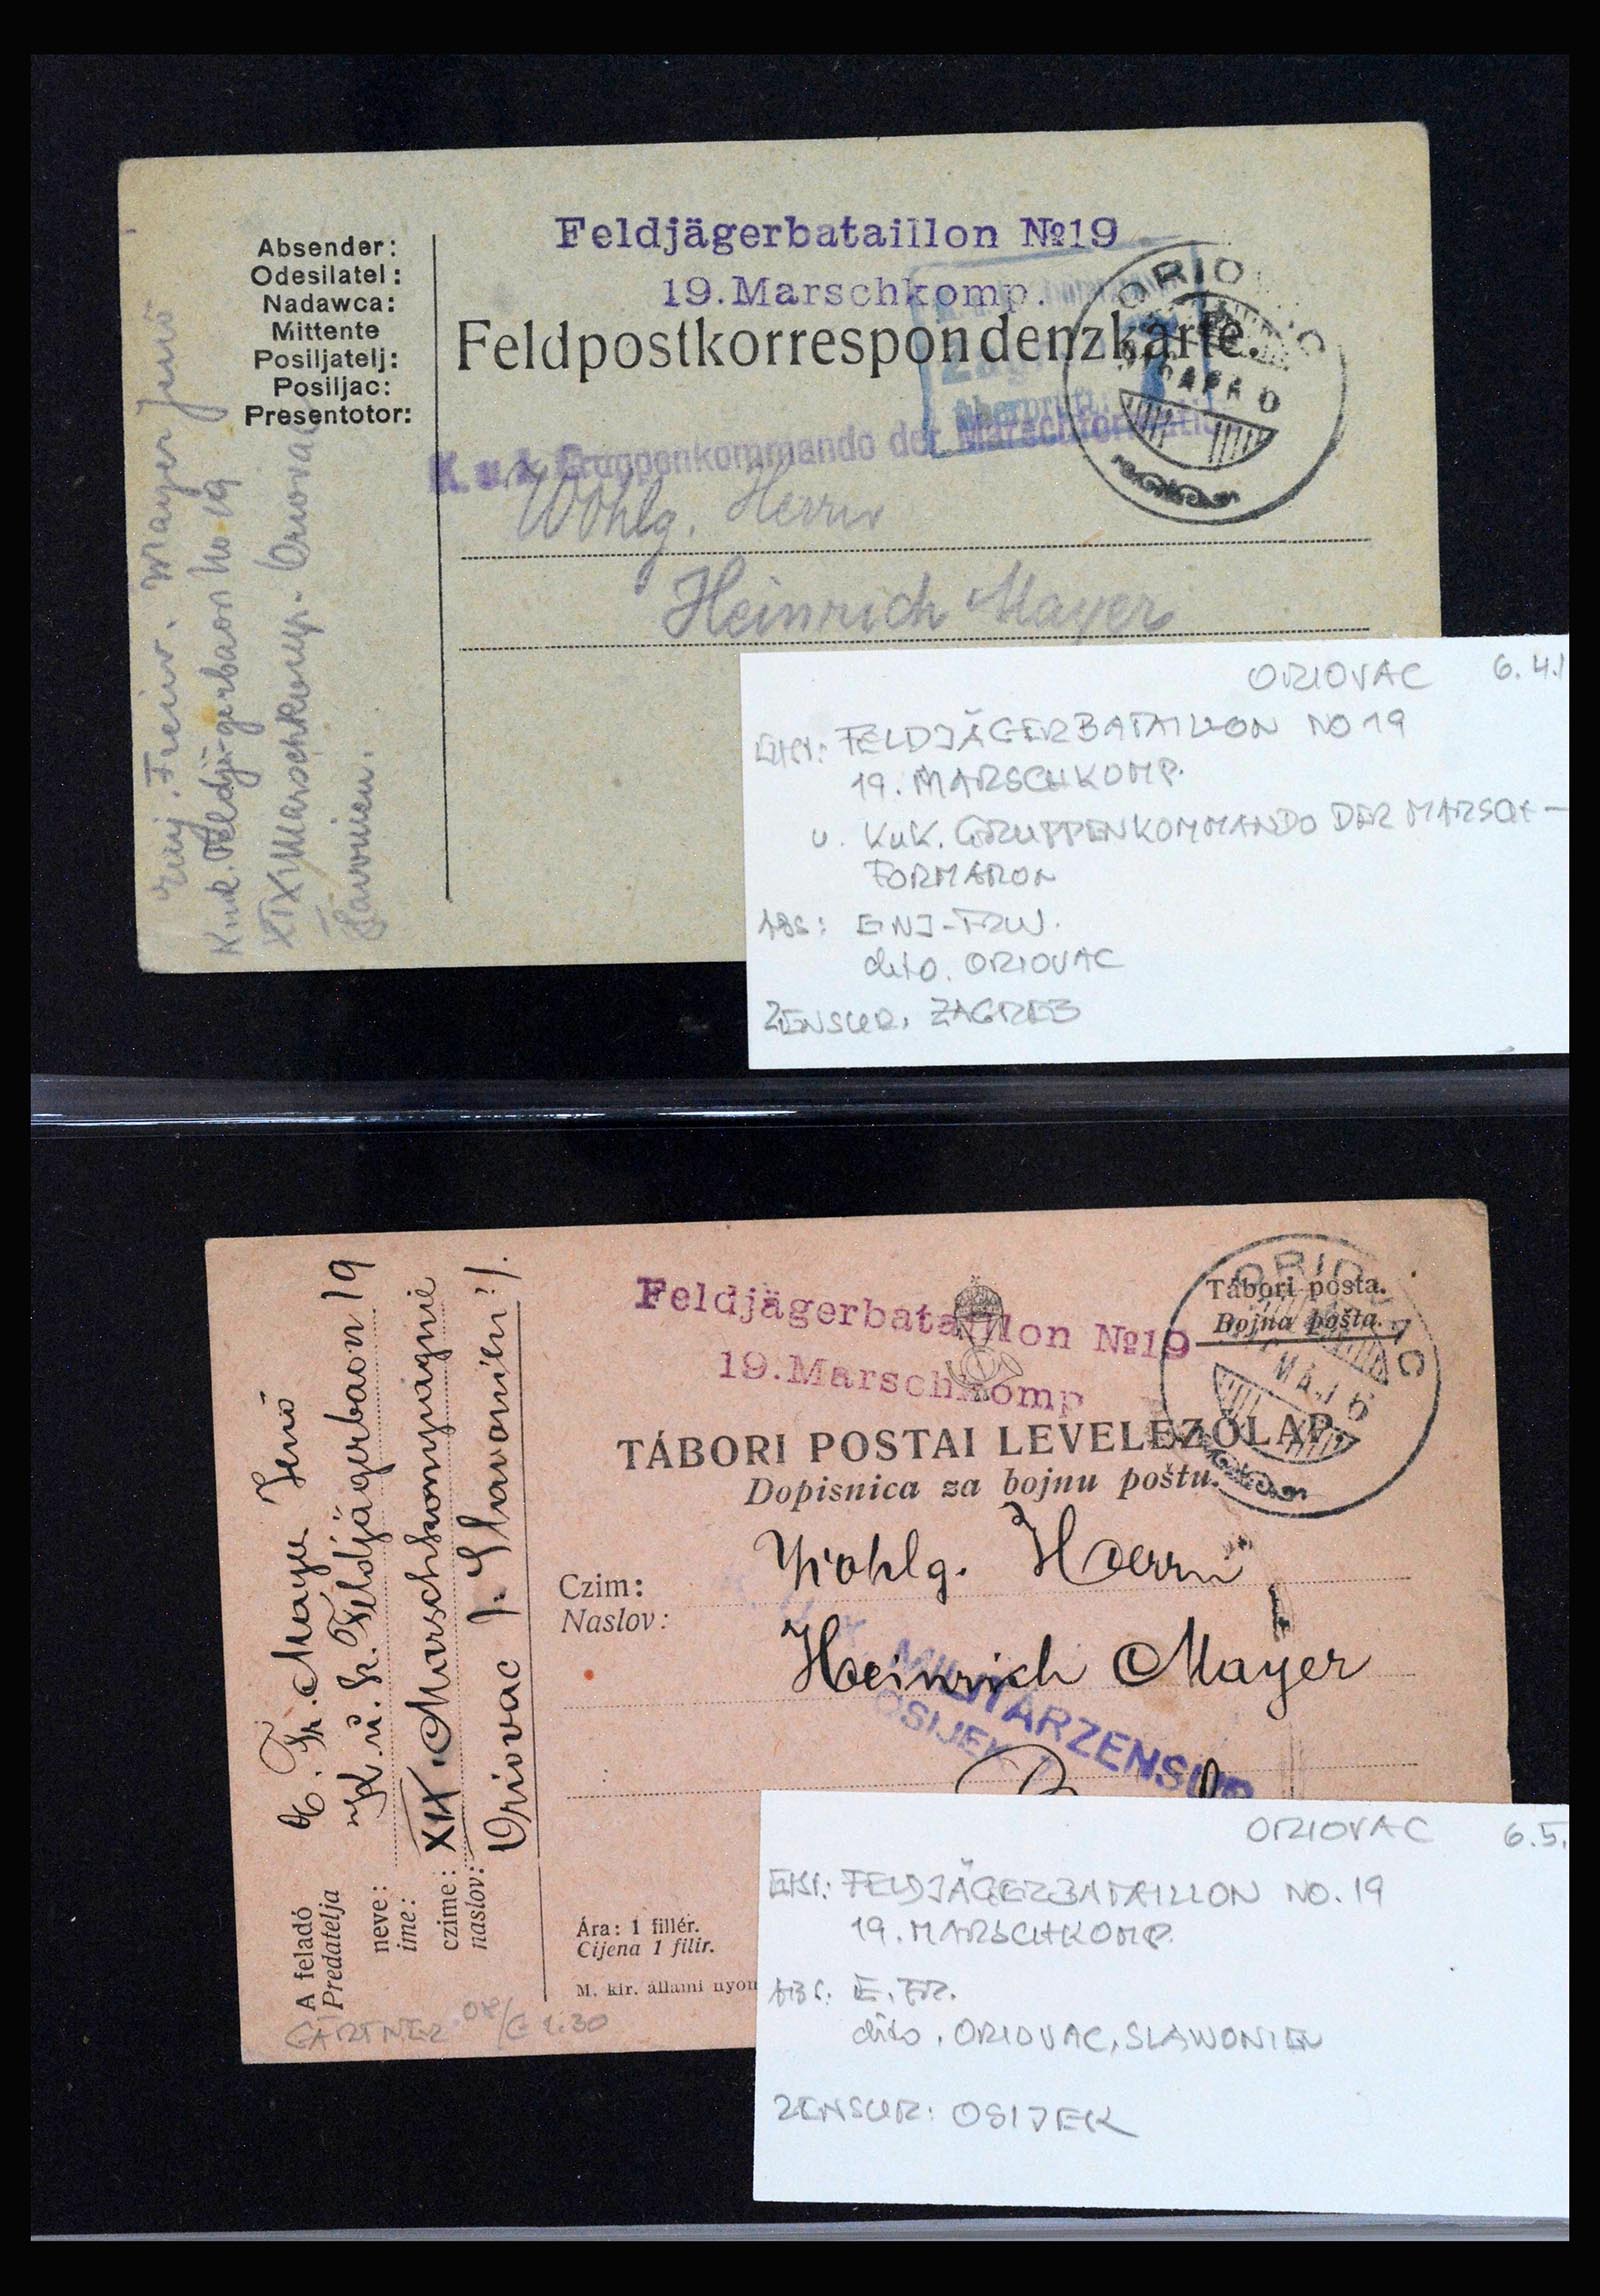 Absender:
Odesilatel:
Nadawca:
Mittente
Posiljatelj:
Posiljac:
Presentotor:
Mayer Jenö
K.u.k. Feldjägerbaon No 19
XIX Marschkomp. Oriovac
Slavonien.
Feldjägerbataillon №19
19.Marschkomp.
Feldpostkorrespondenzkarte.
überprüft
K. u. k. Gruppenkommando der Marschformatio
ORIO
Wohlg. Herrn
Heinrich Mayer
ORIOVAC 6.4.1
FELDJÄGERBATAILLON NO 19
19. MARSCHKOMP.
u. KuK. GRUPPENKOMMANDO DER MARSCH-
FORMATION
ABS: EINJ-FRW.
dito. ORIOVAC
ZENSUR. ZAGREB
E. Fr. Mayer Jenö
k. u. k. Feldjägerbaon 19
XIX. Marschkompagnie
Oriovac /: Slavonien :/.
A feladó
Predatelja
neve:
ime:
czime:
naslov:
Feldjägerbataillon №19
19.Marschkomp
Tábori posta.
Bojna pošta.
ORIOVAC
MÁJ 6
TÁBORI POSTAI LEVELEZŐLAP.
Dopisnica za bojnu poštu.
Czim:
Naslov:
Wohlg. Herrn
Heinrich Mayer
MILITÄRZENSUR
OSIJEK
Ára: 1 fillér.
Cijena 1 filir.
M. kir. állami nyom
GÄRTNER 08/
ORIOVAC 6.5.
FELDJÄGERBATAILLON NO. 19
19. MARSCHKOMP.
ABS: E. FR.
dito. ORIOVAC, SLAWONIEN
ZENSUR: OSIJEK